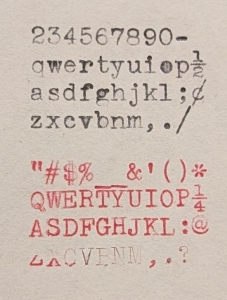 234567890-
qwertyuiop½
asdfghjkl;¢
zxcvbnm,./
"#$% &'()*
QWERTYUIOP¼
ASDFGHJKL:@
ZXCVBNM,.?